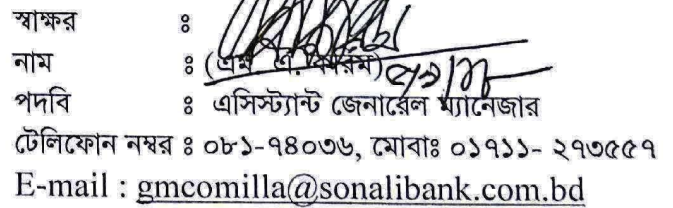 স্বাক্ষর :
নাম : (এম এ করিম)
পদবি : এসিস্ট্যান্ট জেনারেল ম্যানেজার
টেলিফোন নম্বর : ০৮১-৭৪০৩৬, মোবাঃ ০১৭১১- ২৭৩৫৫৭
E-mail : gmcomilla@sonalibank.com.bd